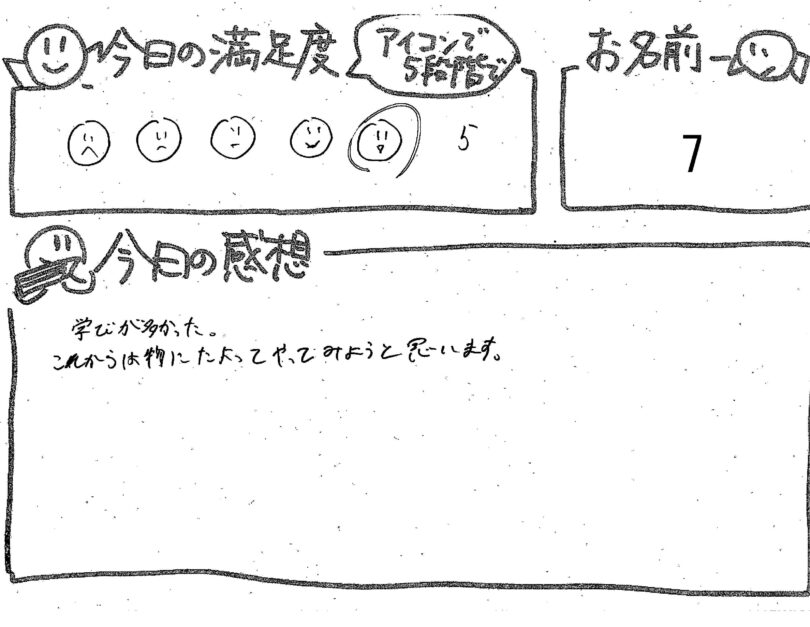 今日の満足度
アイコンで
5段階で
お名前
5
7
今日の感想
学びが多かった。
これからは物にたよってやってみようと思います。